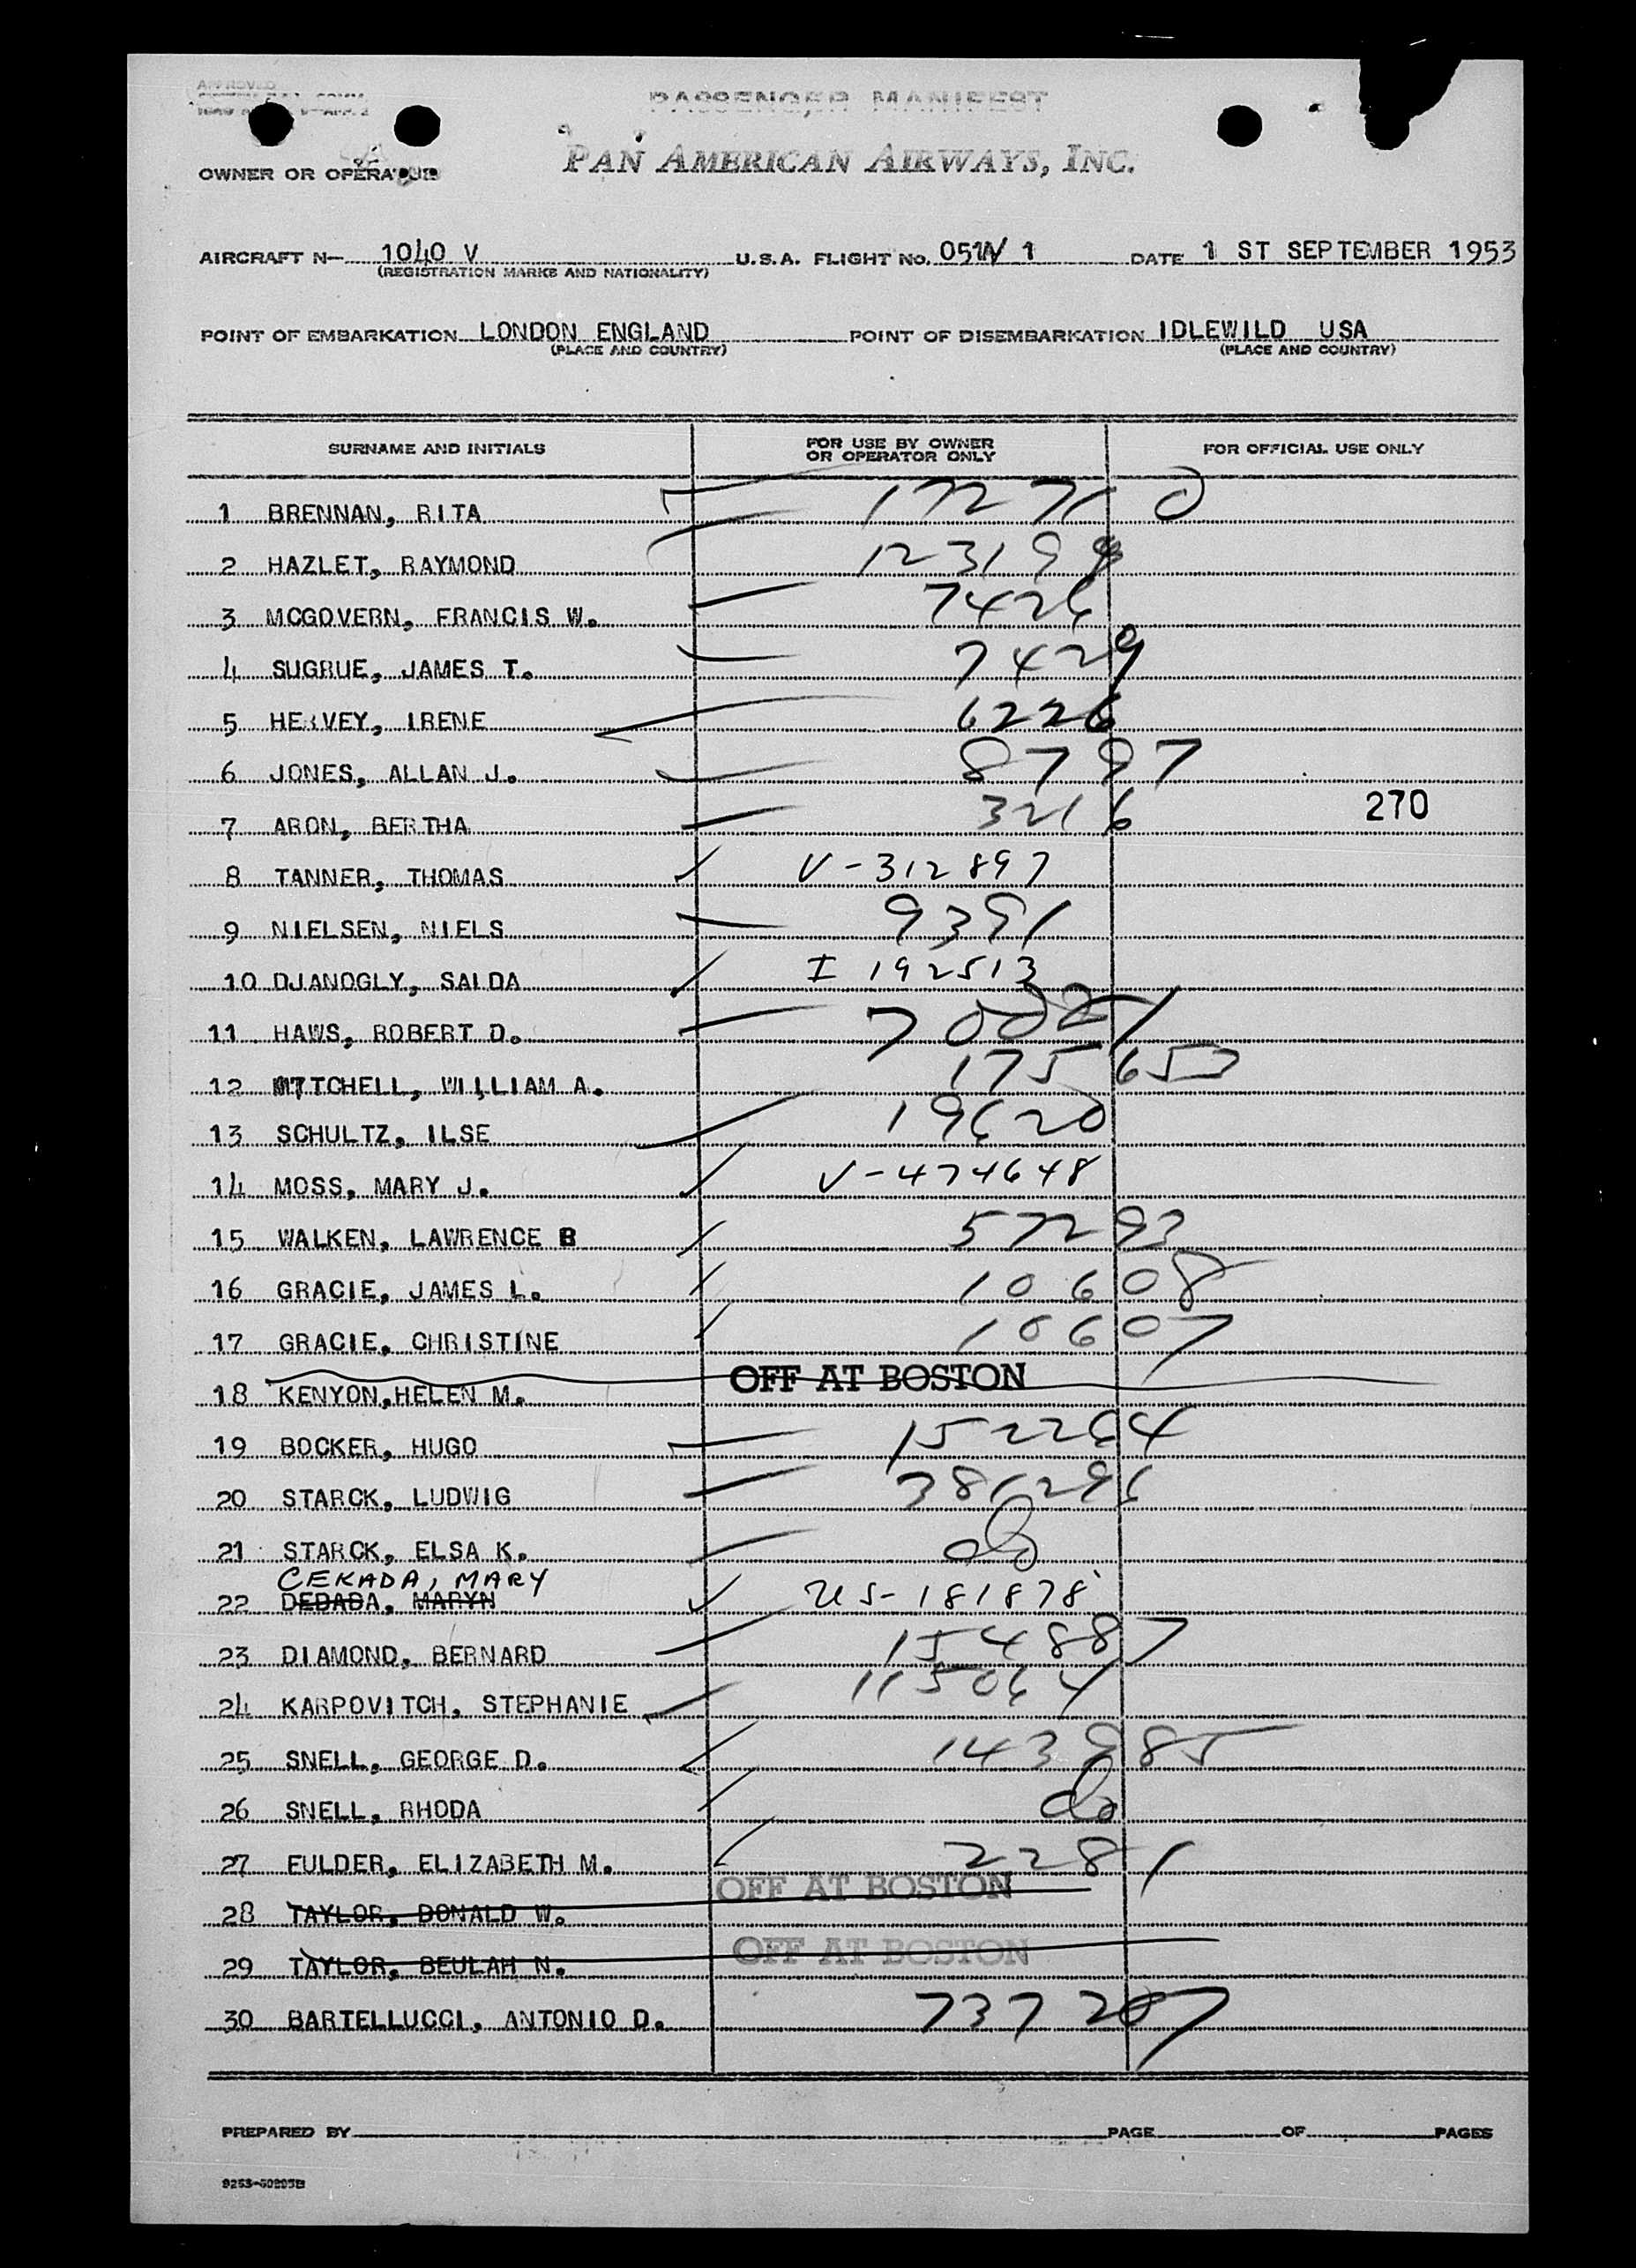 APPROVED
PASSENGER MANIFEST
PAN AMERICAN AIRWAYS, INC.
OWNER OR OPERATOR
AIRCRAFT N- 1040 V U.S.A. FLIGHT NO. DATE 1 ST SEPTEMBER 1953
(REGISTRATION MARKS AND NATIONALITY)
POINT OF EMBARKATION LONDON ENGLAND POINT OF DISEMBARKATION IDLEWILD USA
(PLACE AND COUNTRY) (PLACE AND COUNTRY)
SURNAME AND INITIALS FOR USE BY OWNER OR OPERATOR ONLY FOR OFFICIAL USE ONLY
1 BRENNAN, RITA
2 HAZLET, RAYMOND
3 MCGOVERN, FRANCIS W. 7426
4 SUGRUE, JAMES T. 7429
5 HERVEY, IRENE 6226
6 JONES, ALLAN J. 8797
7 ARON, BERTHA 3216 270
8 TANNER, THOMAS V-312897
9 NIELSEN, NIELS 9391
10 DJANOGLY, SAIDA I 192513
11 HAWS, ROBERT D.
12 MITCHELL, WILLIAM A. 175653
13 SCHULTZ, ILSE 19620
14 MOSS, MARY J. V-474648
15 WALKEN, LAWRENCE B 577293
16 GRACIE, JAMES L. 10608
17 GRACIE, CHRISTINE 10607
18 KENYON,HELEN M. OFF AT BOSTON
19 BOCKER, HUGO 152264
20 STARCK, LUDWIG 386296
21 STARCK, ELSA K. do
CEKADA, MARY
22 DEDADA, MARYN US-181878
23 DIAMOND, BERNARD 154887
24 KARPOVITCH, STEPHANIE 115064
25 SNELL, GEORGE D. 143985
26 SNELL, RHODA do
27 FULDER, ELIZABETH M. 2281
28 TAYLOR, DONALD W. OFF AT BOSTON
29 TAYLOR, BEULAH N. OFF AT BOSTON
30 BARTELLUCCI, ANTONIO D. 737207
PREPARED BY PAGE OF PAGES